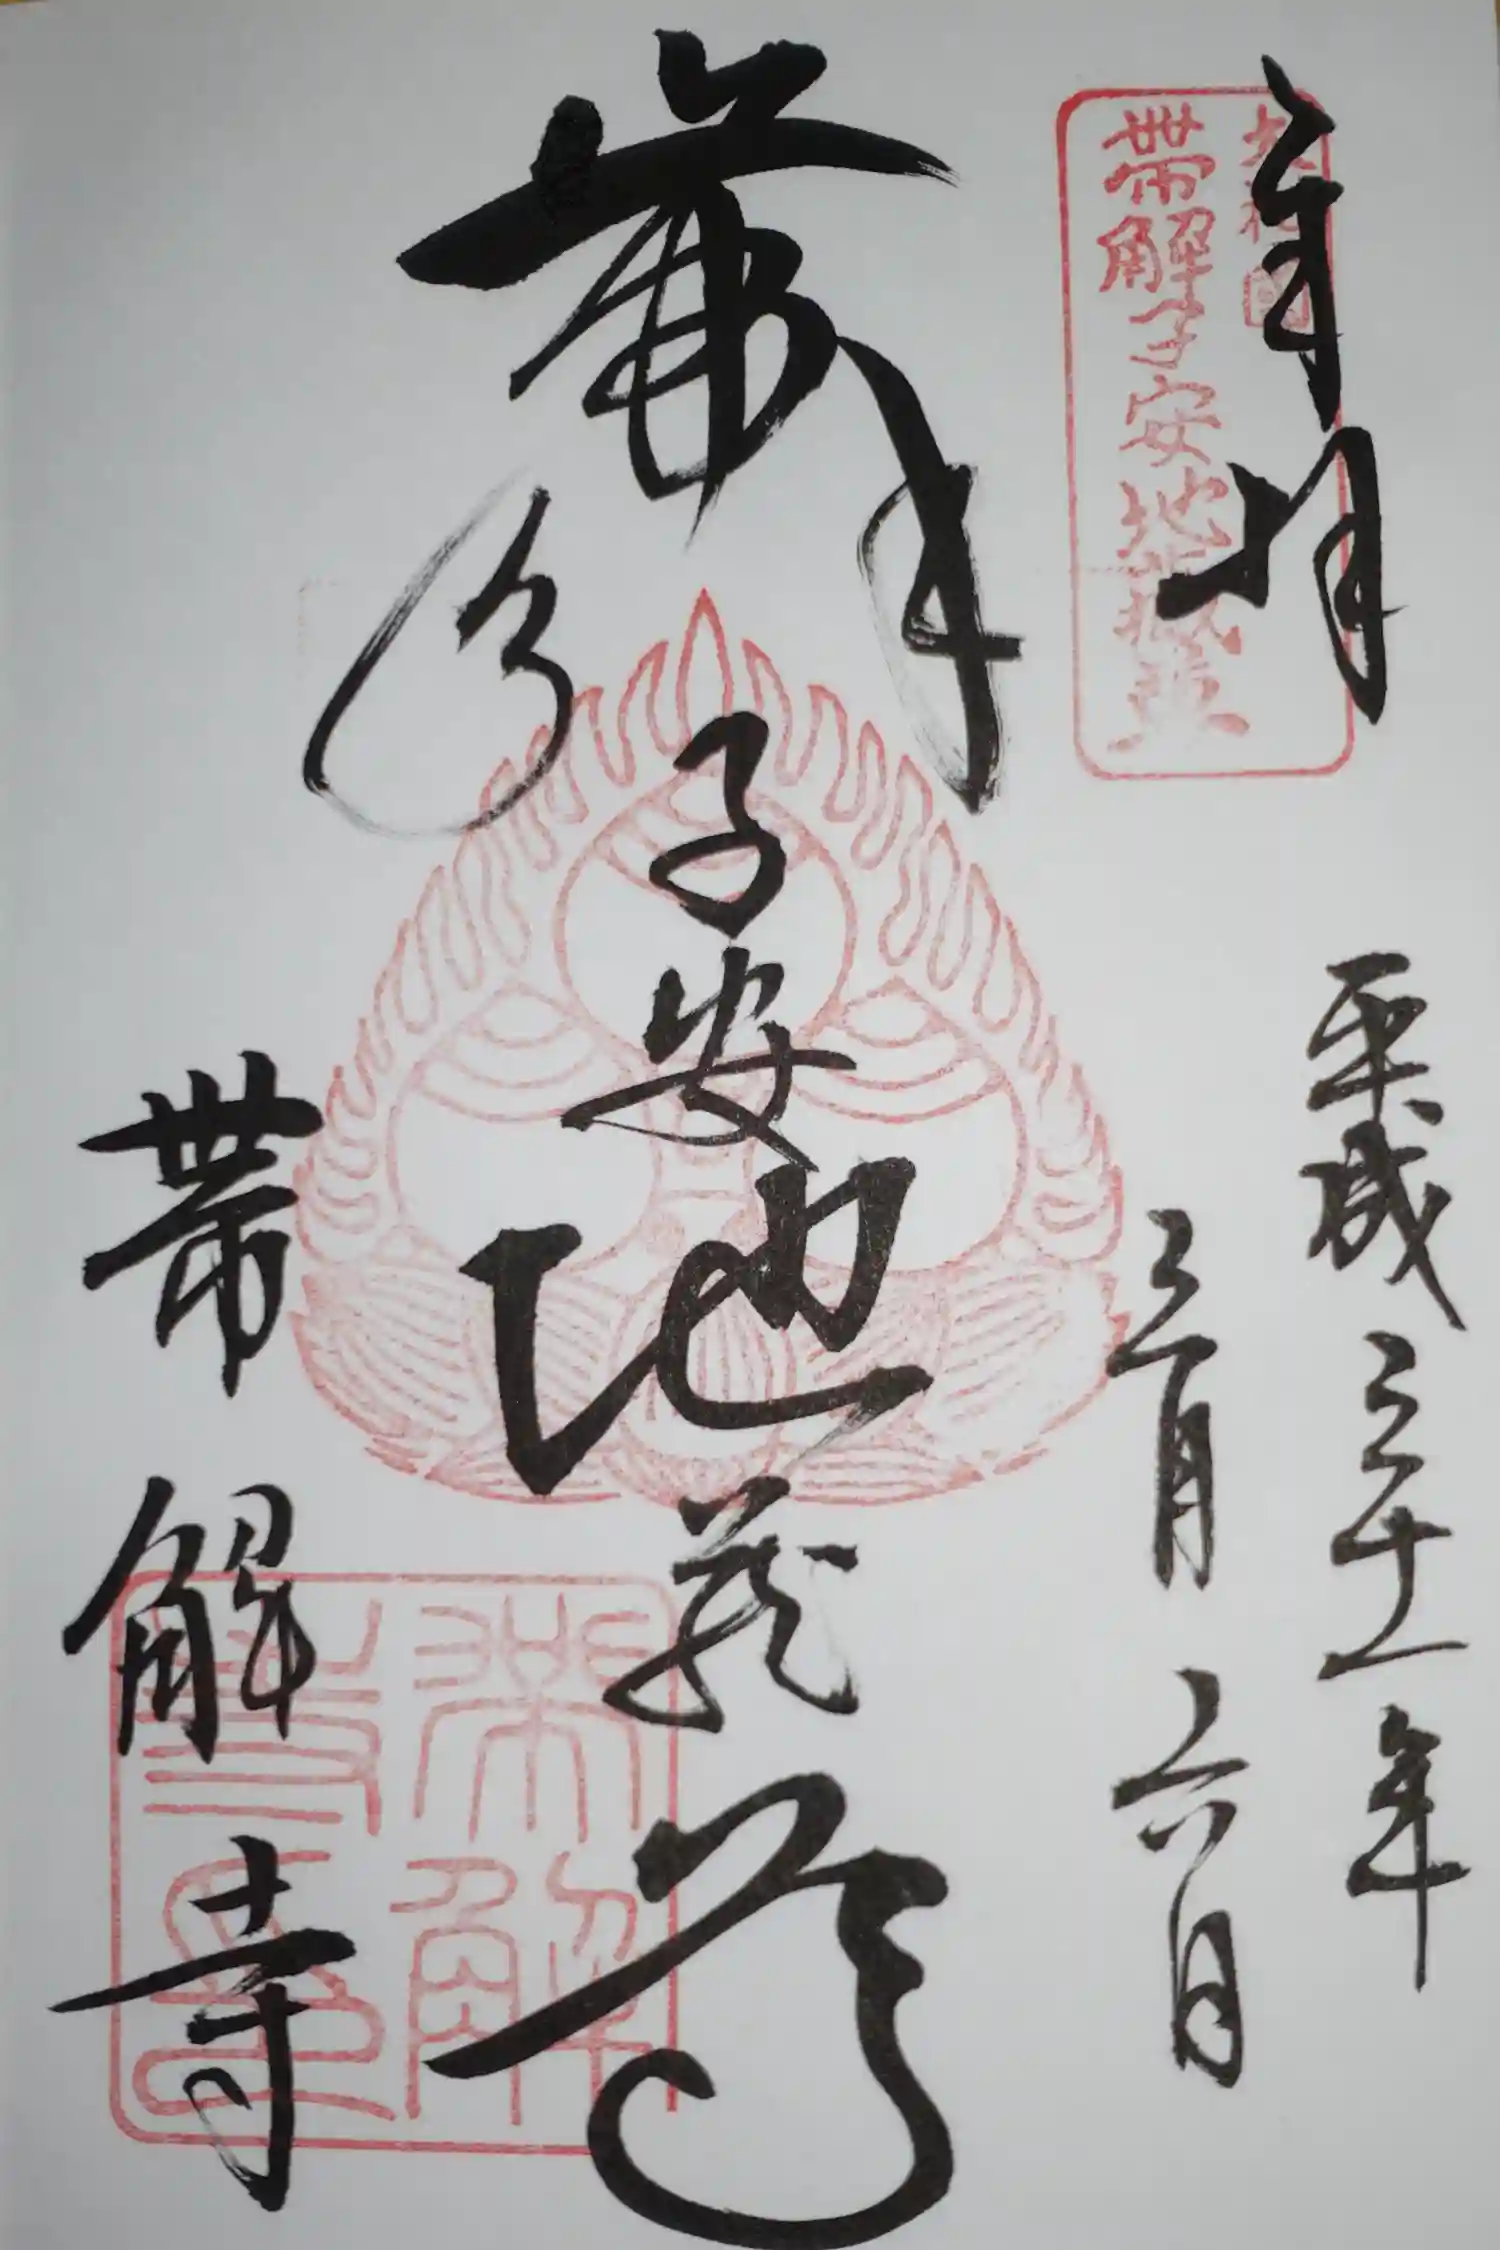 奉拝
帯解子安地蔵尊
平成三十一年
三月六日
帯解子安地蔵尊
帯解寺
帯解寺印